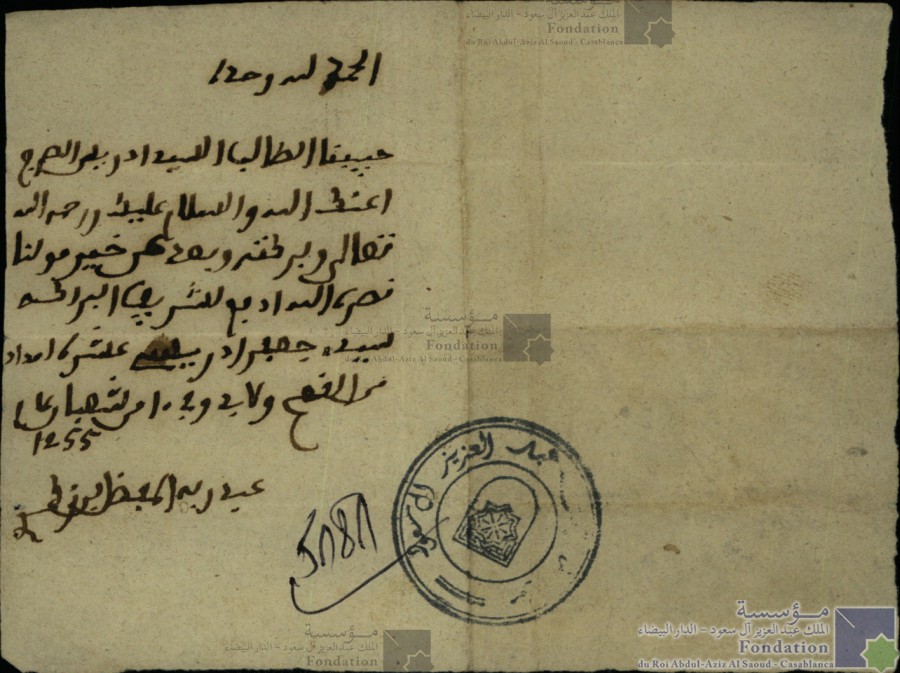 مؤسسة
الملك عبد العزيز آل سعود - الدار البيضاء
Fondation
du Roi Abdul-Aziz Al Saoud - Casablanca
الحمد لله وحده
حبيبنا الطالب السيد ادريس
اعزك الله والسلام عليك ورحمة الله
تعالى وبركته وبعد عن خير مولنا
نصره الله ادفع للشريف البركة
سيدي جعفر ادريس عشرة امداد
من القمح ولابد وفي 10 من شعبان عام
1255
عبد ربه
عبد العزيز آل سعود
مؤسسة
الملك عبد العزيز آل سعود - الدار البيضاء
Fondation
du Roi Abdul-Aziz Al Saoud - Casablanca
مؤسسة
الملك عبد العزيز آل سعود - الدار البيضاء
Fondation
مؤسسة
الملك عبد العزيز آل سعود - الدار البيضاء
Fondation
du Roi Abdul-Aziz Al Saoud - Casablanca